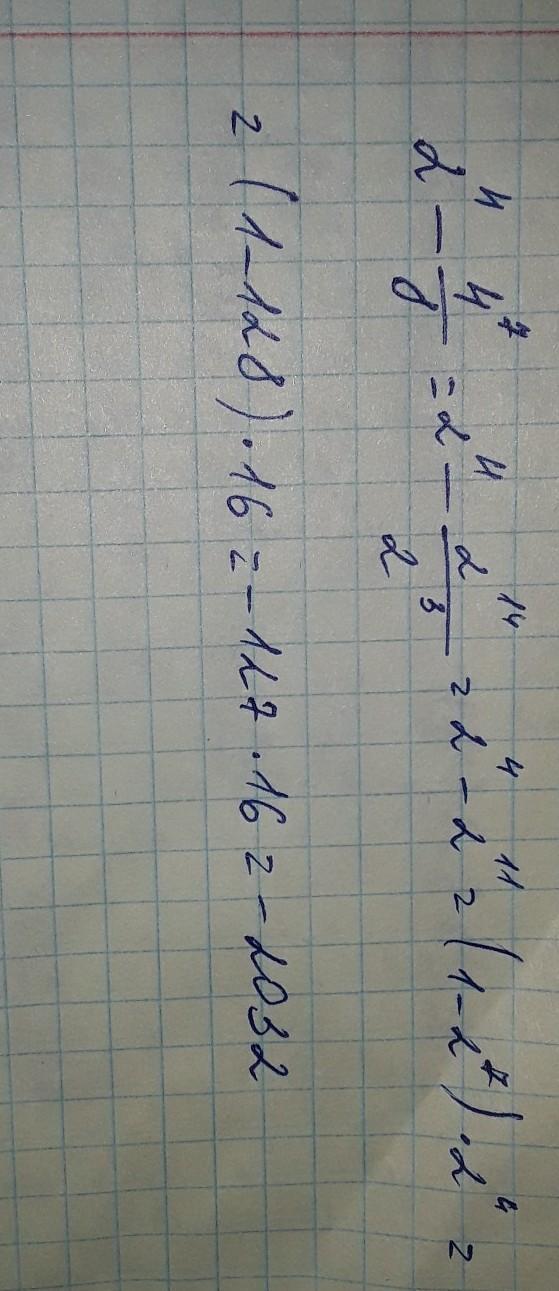 2⁴ - 4⁷/8 = 2⁴ - 2¹⁴/2³ = 2⁴ - 2¹¹ = (1-2⁷)·2⁴ =
= (1-128)·16 = -127·16 = -2032